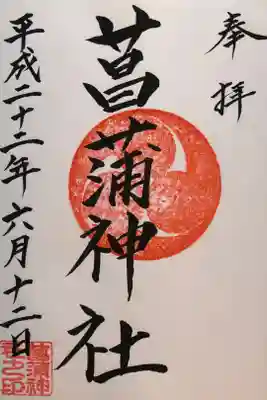 奉拝
菖蒲神社
平成二十二年六月十二日